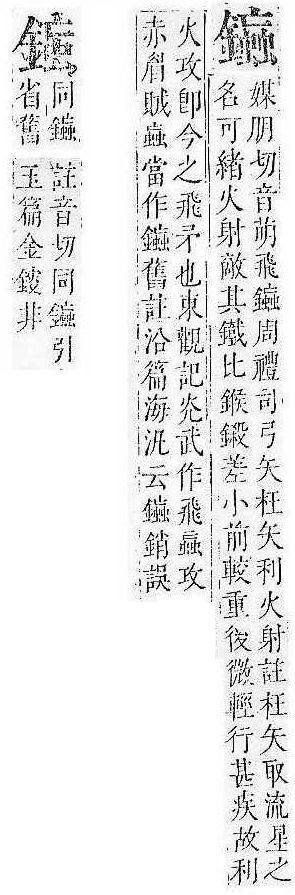 媒朋切音萌飛周禮司弓矢枉矢利火射註枉矢取流星之
名可緒火射敵其鐵比鍭鍛差小前較重後微輕行甚疾故利
火攻即今之飛矛也東觀記光武作飛蝱攻
赤眉賊蝱當作舊註沿篇海汎云銷誤
同
省舊
註音切同引
玉篇金鏤非